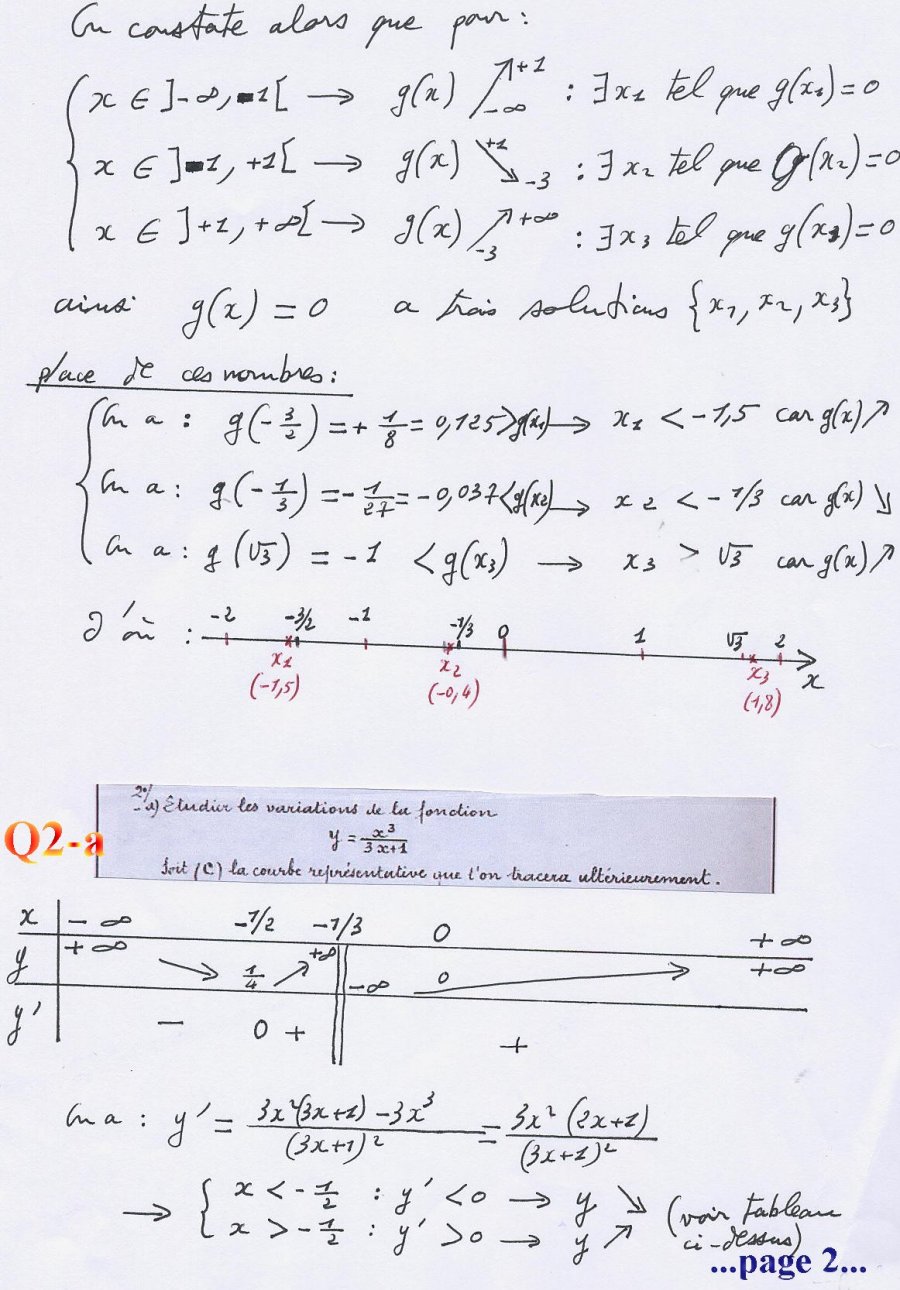 On constate alors que pour :
x ∈ ]-∞, -1[ → g(x) ↗ -∞ +1 : ∃ x1 tel que g(x1) = 0
x ∈ ]-1, +1[ → g(x) +1 ↘ -3 : ∃ x2 tel que g(x2) = 0
x ∈ ]+1, +∞[ → g(x) -3 ↗ +∞ : ∃ x3 tel que g(x3) = 0
ainsi g(x) = 0 a trois solutions {x1, x2, x3}
place de ces nombres :
On a : g(-3/2) = + 1/8 = 0,125 > g(x1) → x1 < -1,5 car g(x) ↗
On a : g(-1/3) = -1/27 = -0,037 < g(x2) → x2 < -1/3 car g(x) ↘
On a : g(√3) = -1 < g(x3) → x3 > √3 car g(x) ↗
d'où : -2 -3/2 -1 -1/3 0 1 √3 2
x1 x2 x3 x
(-1,5) (-0,4) (1,8)
Q2-a
2°/ a) Étudier les variations de la fonction
y = x³/(3x+1)
Soit (C) la courbe représentative que l'on tracera ultérieurement.
x -∞ -1/2 -1/3 0 +∞
y +∞ ↘ 1/4 ↗ +∞ -∞ 0 ↗ +∞
y' - 0 + +
On a : y' = (3x²(3x+1) - 3x³)/(3x+1)² = 3x² (2x+1)/(3x+1)²
→ x < -1/2 : y' < 0 → y ↘ (voir tableau
x > -1/2 : y' > 0 → y ↗ ci-dessus)
...page 2...